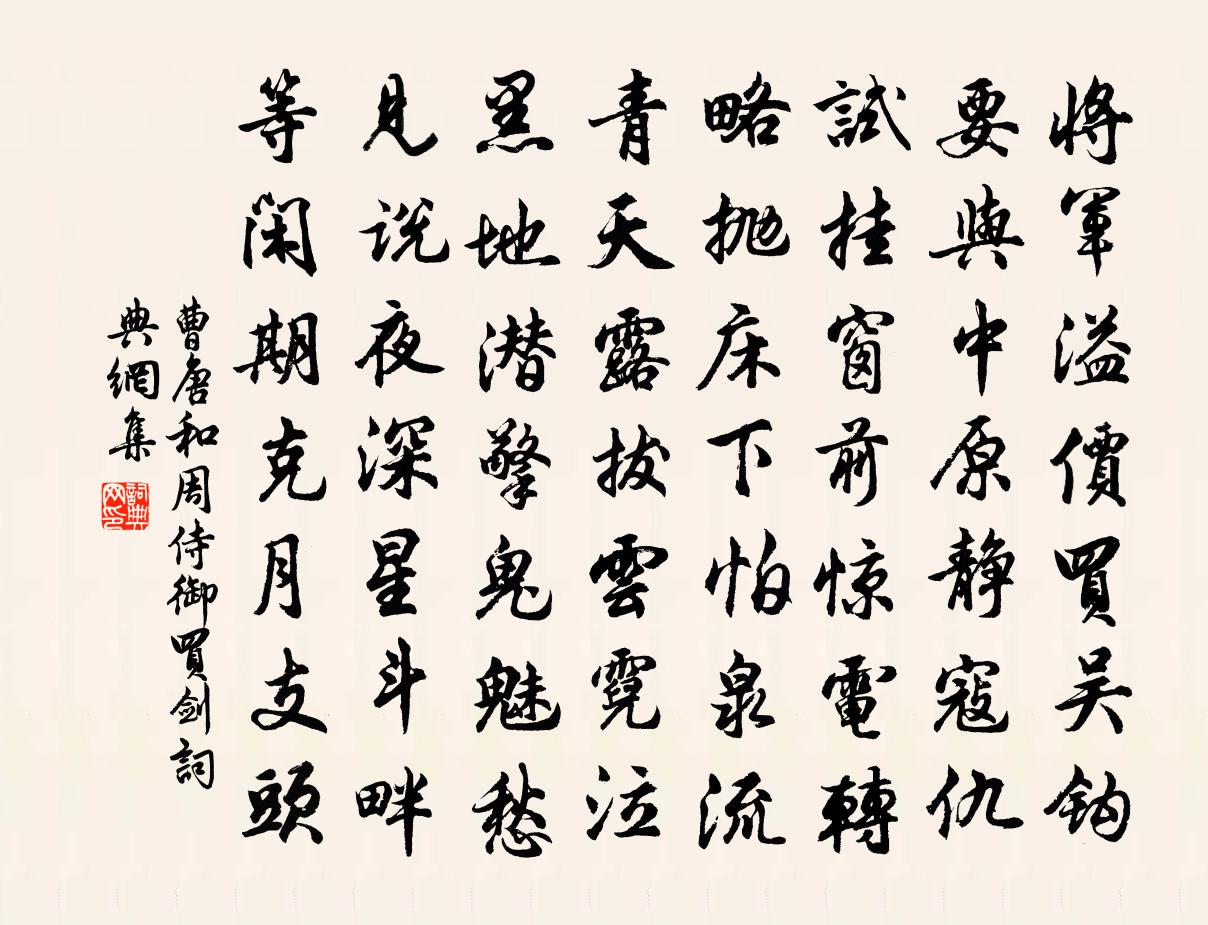 將軍溢價買吴鈎
要與中原静寇仇
試挂窗前惊電轉
略抛床下怕泉流
青天露拔雲霓泣
黑地潜擎鬼魅愁
見说夜深星斗畔
等闲期克月支頭
曹唐和周侍御買剑詞
典網集
詞典
网印